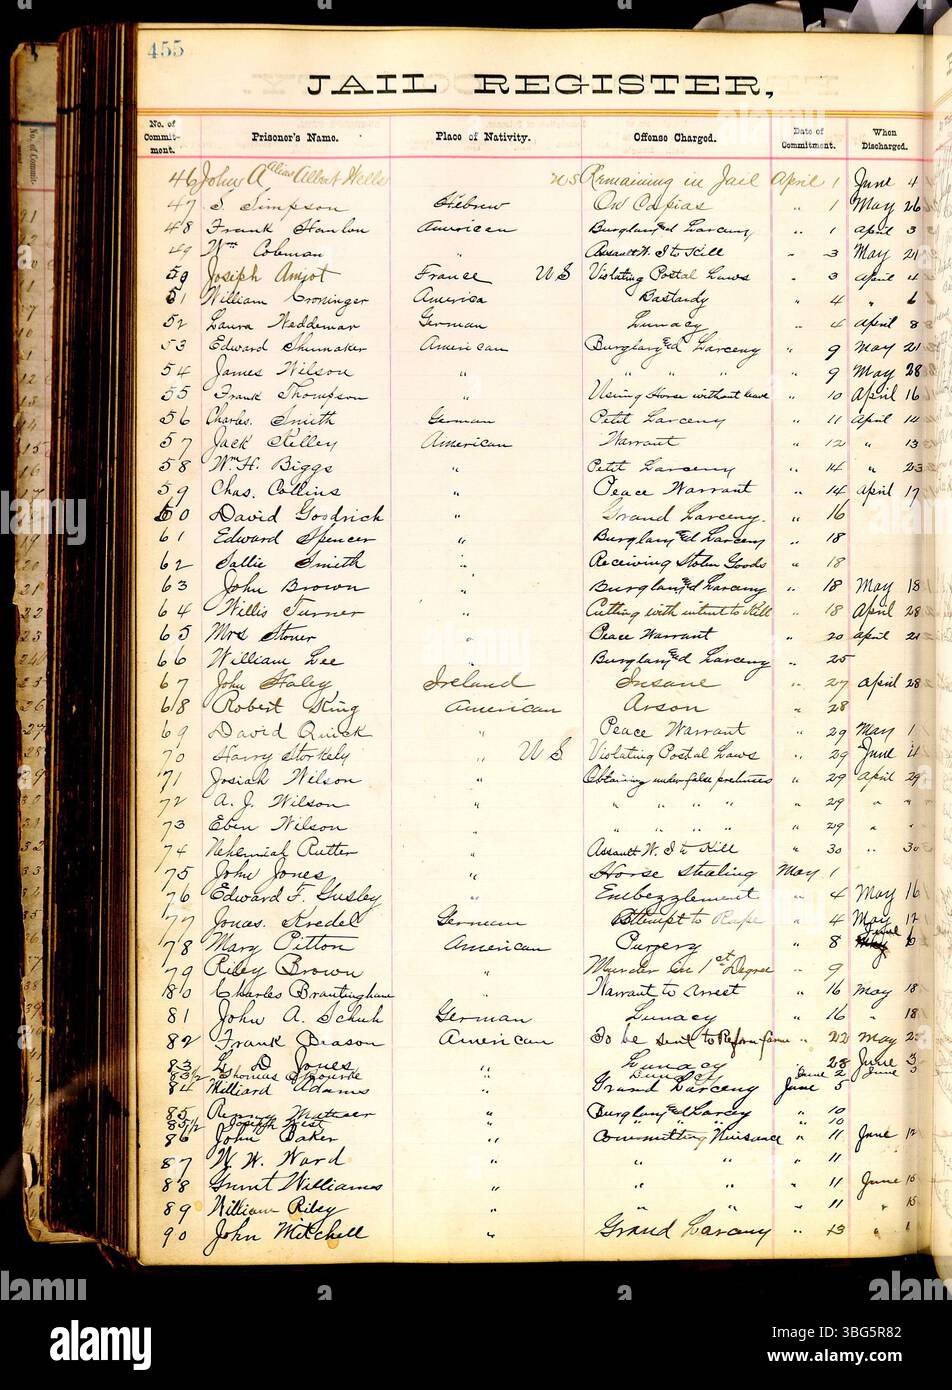 455
JAIL REGISTER,
No. of Commit- ment. Prisoner's Name. Place of Nativity. Offense Charged. Date of Commitment. When Discharged.
46 John A alias Albert Wells US Remaining in Jail April 1 June 4
47 S Simpson Hebrew On Capias " 1 May 26
48 Frank Hanlon American Burglary and Larceny " 1 April 3
49 Wm Coleman " Assault W. I to Kill " 3 May 21
50 Josiph Amyot France U S Violating Postal Laws " 3 April 4
51 William Croninger America Bastardy " 4 " 6
52 Laura Weddemar German Lunacy " 4 April 8
53 Edward Shumaker American Burglary and Larceny " 9 May 21
54 James Wilson " " " " " 9 May 28
55 Frank Thompson " Using Horse without leave " 10 April 16
56 Charles Smith German Petit Larceny " 11 April 14
57 Jack Kelley American Warrant " 12 " 13
58 Wm H. Biggs " Petit Larceny " 14 " 23
59 Chas. Collins " Peace Warrant " 14 April 17
60 David Goodrich " Grand Larceny. " 16
61 Edward Spencer " Burglary and Larceny " 18
62 Sallie Smith " Receiving Stolen Goods " 18
63 John Brown " Burglary and Larceny " 18 May 18
64 Willis Turner " Cutting with intent to Kill " 18 April 28
65 Mrs Stoner " Peace Warrant " 20 April 21
66 William Lee " Burglary and Larceny " 25
67 John Haley Ireland Insane " 27 April 28
68 Robert King American Arson " 28
69 David Quick " Peace Warrant " 29 May 1
70 Harry Storkely " U S Violating Postal Laws " 29 June 4
71 Josiah Wilson " Obtaining under false pretenses " 29 April 29
72 A. J. Wilson " " " " " " 29 " "
73 Eben Wilson " " " " " " 29 " "
74 Nehemiah Rutter " Assault W. I to Kill " 30 " 30
75 John Jones " Horse Stealing May 1
76 Edward F. Gusley " Embezzlement " 4 May 16
77 Jonas Kredel German Attempt to Rape " 4 May 12
78 Mary Pitton American Purgery " 8 June
79 Riley Brown " Murder in 1st Degree " 9
80 Charles Brantingham " Warrant to Arrest " 16 May 18
81 John A. Schuh German Lunacy " 16 " 18
82 Frank Deason American To be sent to Reform farm " 22 May
83 L. D. Jones " Lunacy " 28 June 3
83 1/2 Thomas O'Rourke " Lunacy June 2 June 3
84 Williard Adams " Grand Larceny June 5
85 " Burglary and Larceny " 10
85 1/2 Joseph West " " 10
86 John Baker " Committing Nuisance " 11 June 12
87 W. W. Ward " " " " 11
88 Grant Williams " " " " 11 June 15
89 William Riley " " " " 11 " 15
90 John Mitchell " Grand Larceny " 13 "
alamy
Image ID: 3BG5R82
www.alamy.com